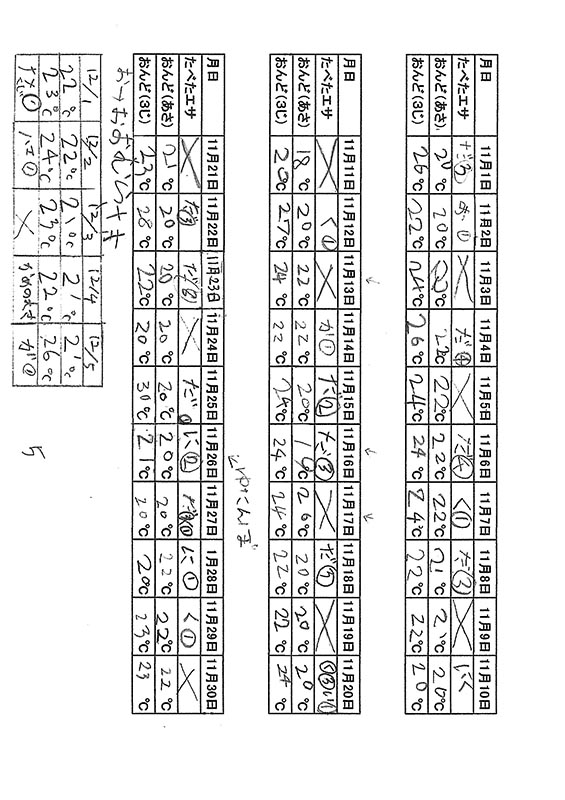 月日 11月1日 11月2日 11月3日 11月4日 11月5日 11月6日 11月7日 11月8日 11月9日 11月10日
たべたエサ だ③ お① × だ④ × だ④ く① だ③ × にく
おんど(あさ) 20℃ 20℃ 22℃ 22℃ 22℃ 22℃ 22℃ 21℃ 21℃ 20℃
おんど(3じ) 26℃ 22℃ 24℃ 26℃ 24℃ 24℃ 24℃ 22℃ 22℃ 20℃
月日 11月11日 11月12日 11月13日 11月14日 11月15日 11月16日 11月17日 11月18日 11月19日 11月20日
たべたエサ × く① × が① だ② だ③ × だ⑦ ×
おんど(あさ) 18℃ 20℃ 22℃ 22℃ 20℃ 19℃ 20℃ 20℃ 20℃ 20℃
おんど(3じ) 20℃ 27℃ 24℃ 22℃ 24℃ 24℃ 24℃ 22℃ 22℃ 24℃
月日 11月21日 11月22日 11月23日 11月24日 11月25日 11月26日 11月27日 1月28日 11月29日 11月30日
たべたエサ × だ③ だ② × だ① に② だ に① く① ×
おんど(あさ) 21℃ 20℃ 20℃ 20℃ 20℃ 20℃ 20℃ 22℃ 22℃ 22℃
おんど(3じ) 23℃ 28℃ 22℃ 20℃ 30℃ 21℃ 20℃ 20℃ 23℃ 23℃
お→おおむらさき
12/1 12/2 12/3 12/4 12/5
22℃ 22℃ 21℃ 21℃ 21℃
23℃ 24℃ 23℃ 22℃ 26℃
① ハエ① × が①
5